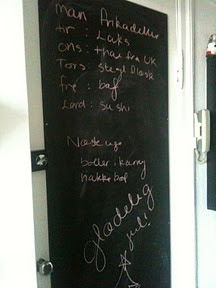 man Frikadeller
tir : Laks
ons : thai fra UK
Tors : stegt Disse
fre : bøf
Lørd : sushi
Næste uge
boller i karry
hakkebøf
glædelig
jul!